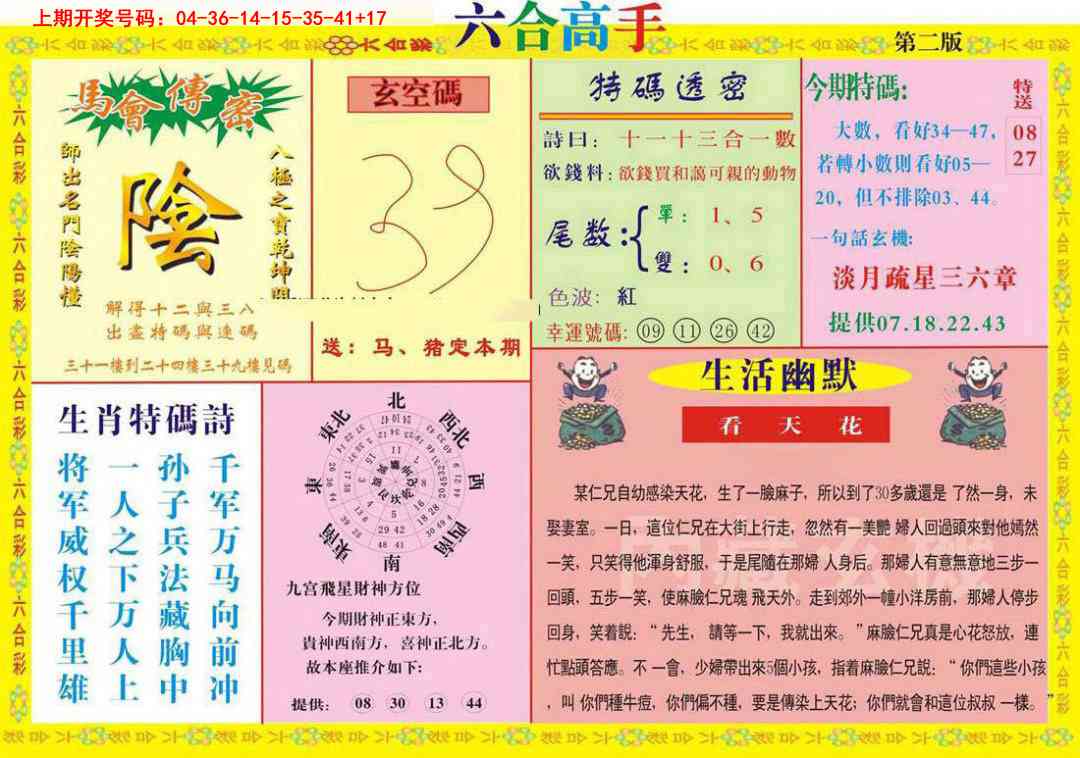 上期开奖号码：04-36-14-15-35-41+17
六合高手
第二版
馬會傳密
師出名門陰陽懂
陰
八極之寶乾坤開
解得十二與三八
出盡特碼與連碼
三十一樓到二十四樓三十九樓見碼
玄空碼
送：马、猪定本期
特碼透密
詩曰：十一十三合一數
欲錢料：欲錢買和藹可親的動物
尾数：
單：1、5
雙：0、6
色波：紅
幸運號碼：09 11 26 42
今期特碼：
大數，看好34—47，
若轉小數則看好05—
20，但不排除03、44。
一句話玄機：
淡月疏星三六章
提供07.18.22.43
特送
08
27
生肖特碼詩
千军万马向前冲
孙子兵法藏胸中
一人之下万人上
将军威权千里雄
北
東北
西北
東
西
東南
西南
南
九宫飛星財神方位
今期財神正東方，
貴神西南方，喜神正北方。
故本座推介如下:
提供： 08 30 13 44
生活幽默
看天花
某仁兄自幼感染天花，生了一臉麻子，所以到了30多歲還是 了然一身，未
娶妻室。一日，這位仁兄在大街上行走，忽然有一美艷 婦人回過頭來對他嫣然
一笑，只笑得他渾身舒服，于是尾隨在那婦 人身后。那婦人有意無意地三步一
回頭，五步一笑，使麻臉仁兄魂 飛天外。走到郊外一幢小洋房前，那婦人停步
回身，笑着説：“先生，請等一下，我就出來。”麻臉仁兄真是心花怒放，連
忙點頭答應。不 一會，少婦帶出來5個小孩，指着麻臉仁兄説：“你們這些小孩
，叫 你們種牛痘，你們偏不種，要是傳染上天花；你們就會和這位叔叔 一樣。”